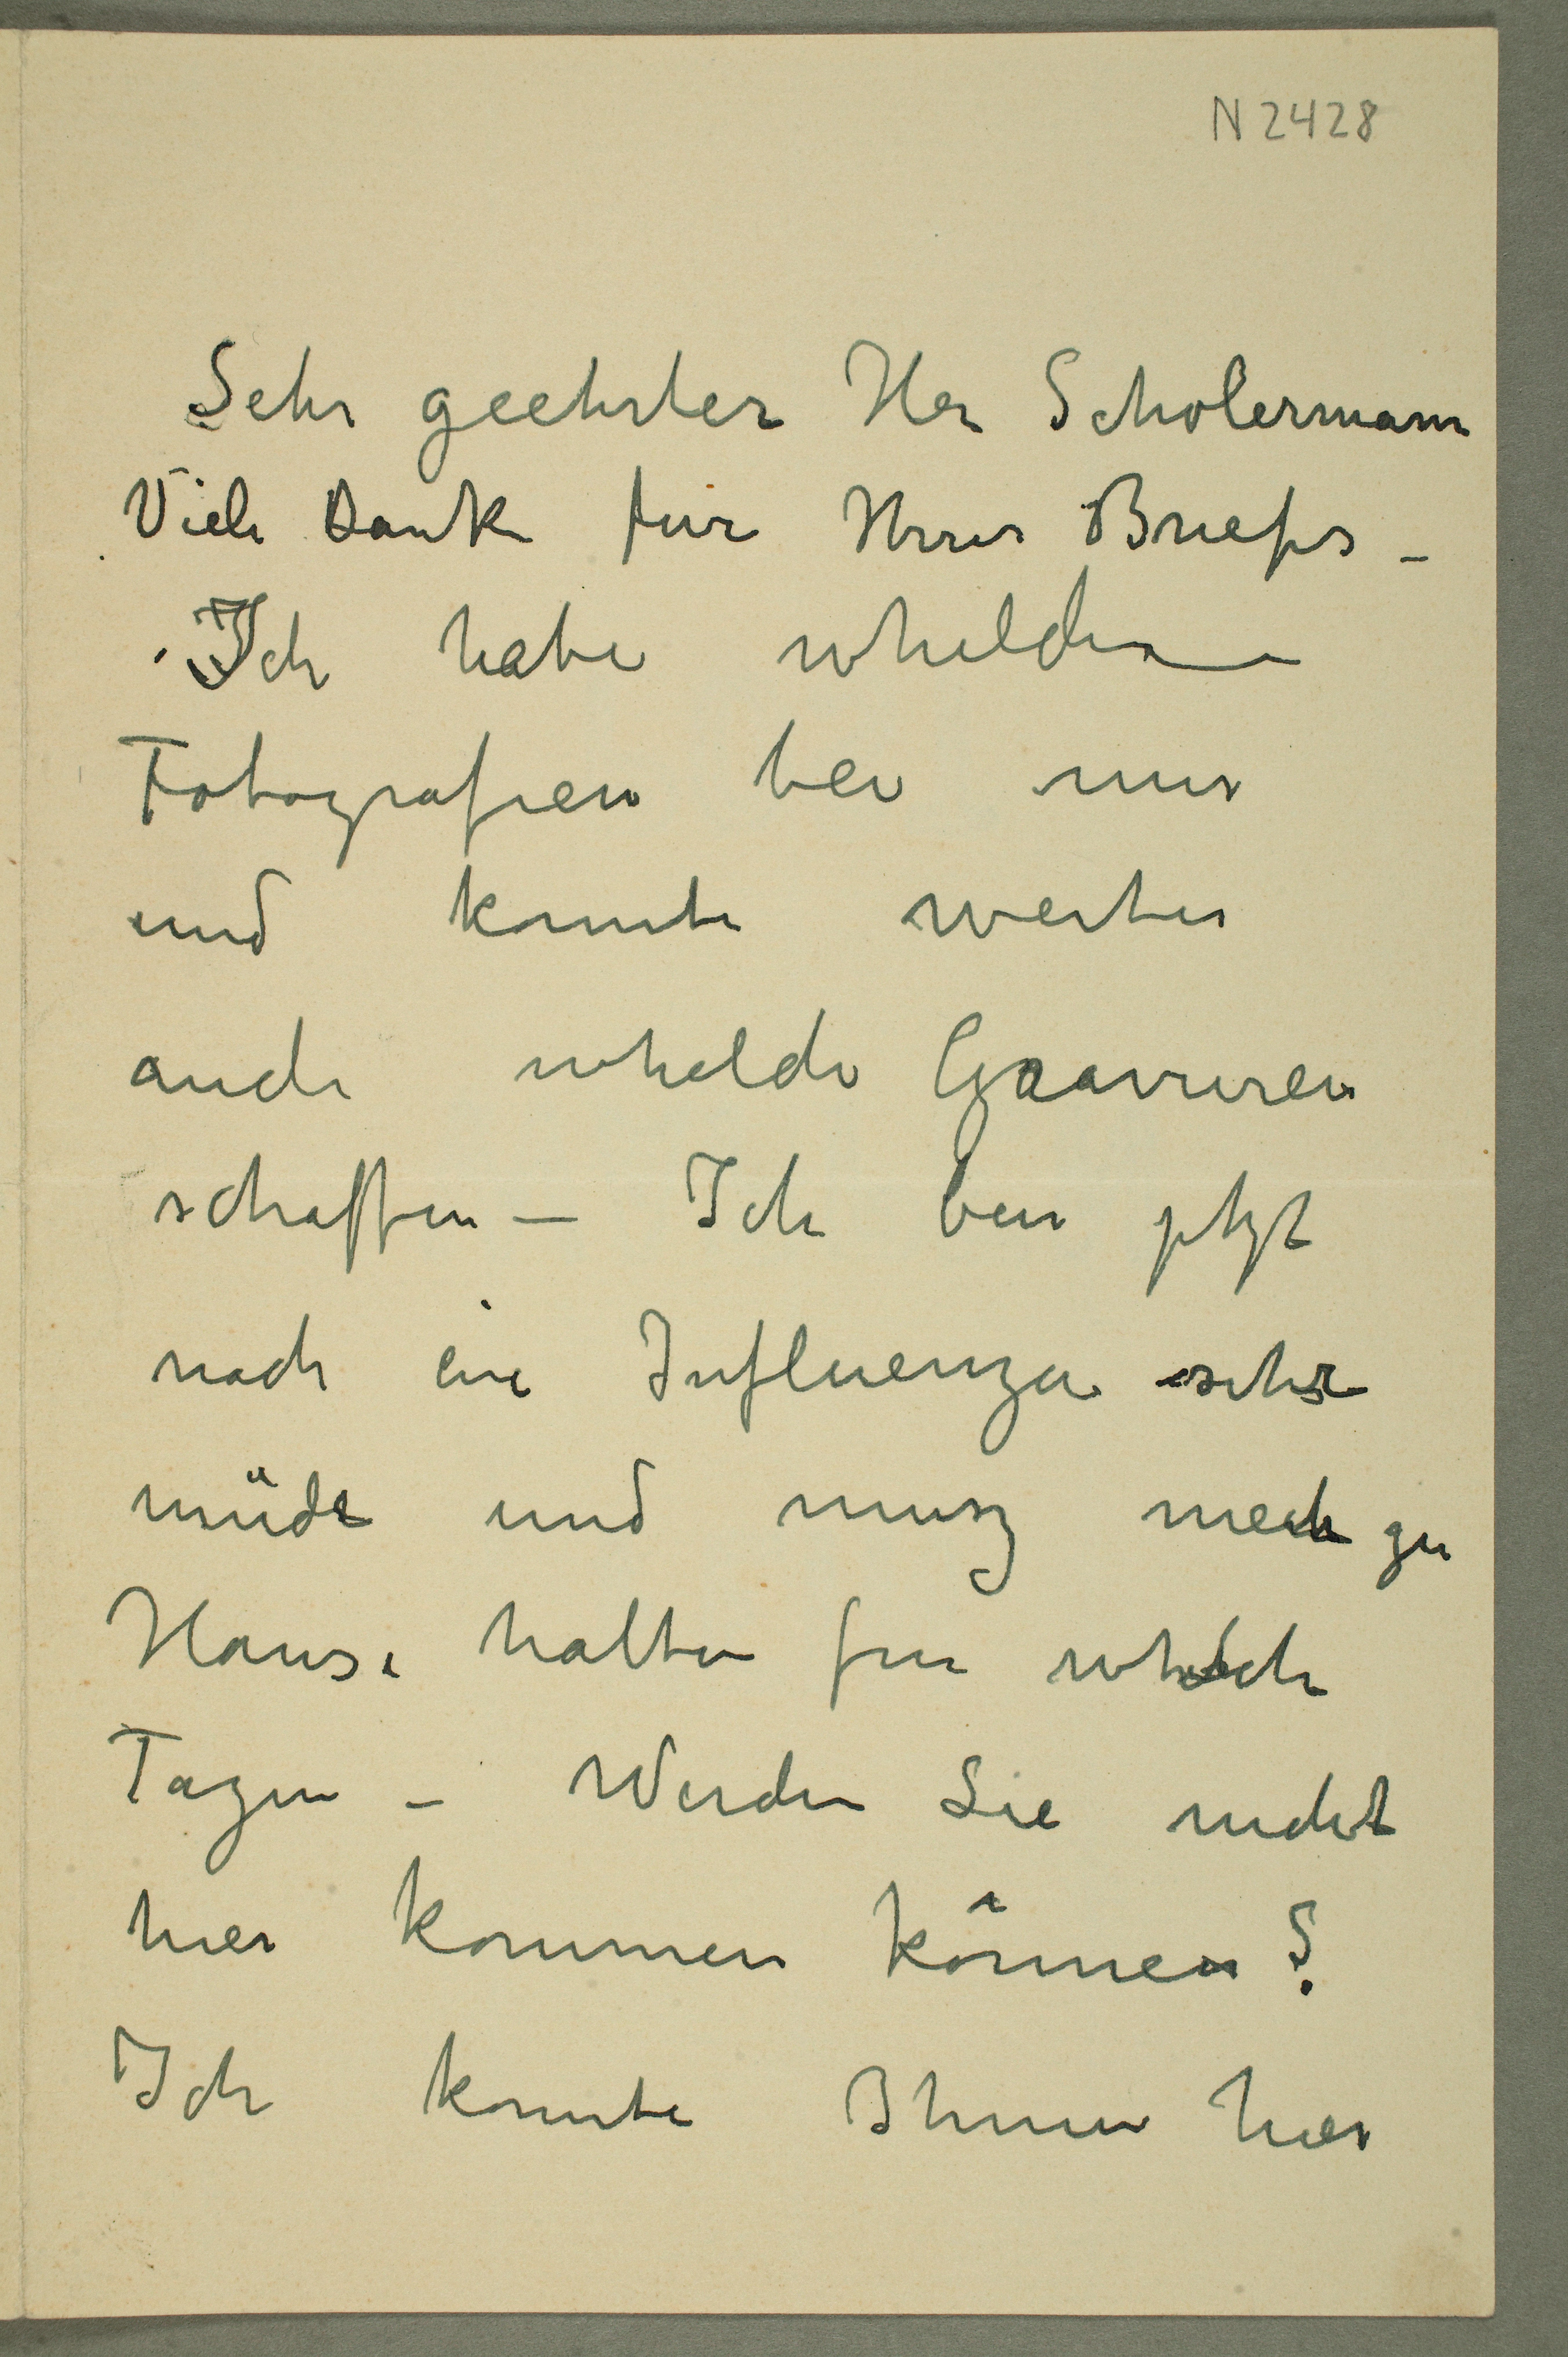 N 2428
Sehr geehrter Her Scholermann
Viele Dank für Ihres Briefes –
Ich habe whelden
Fotografien bei mir
und konnte weiter
auch whelde Gravuren
schaffen – Ich bin jetzt
nach eine Influenza sehr
müde und musz mich zu
Hause halten fur whelch
Tagen – Werden Sie nicht
hier kommen können?
Ich konnte Ihnen hier